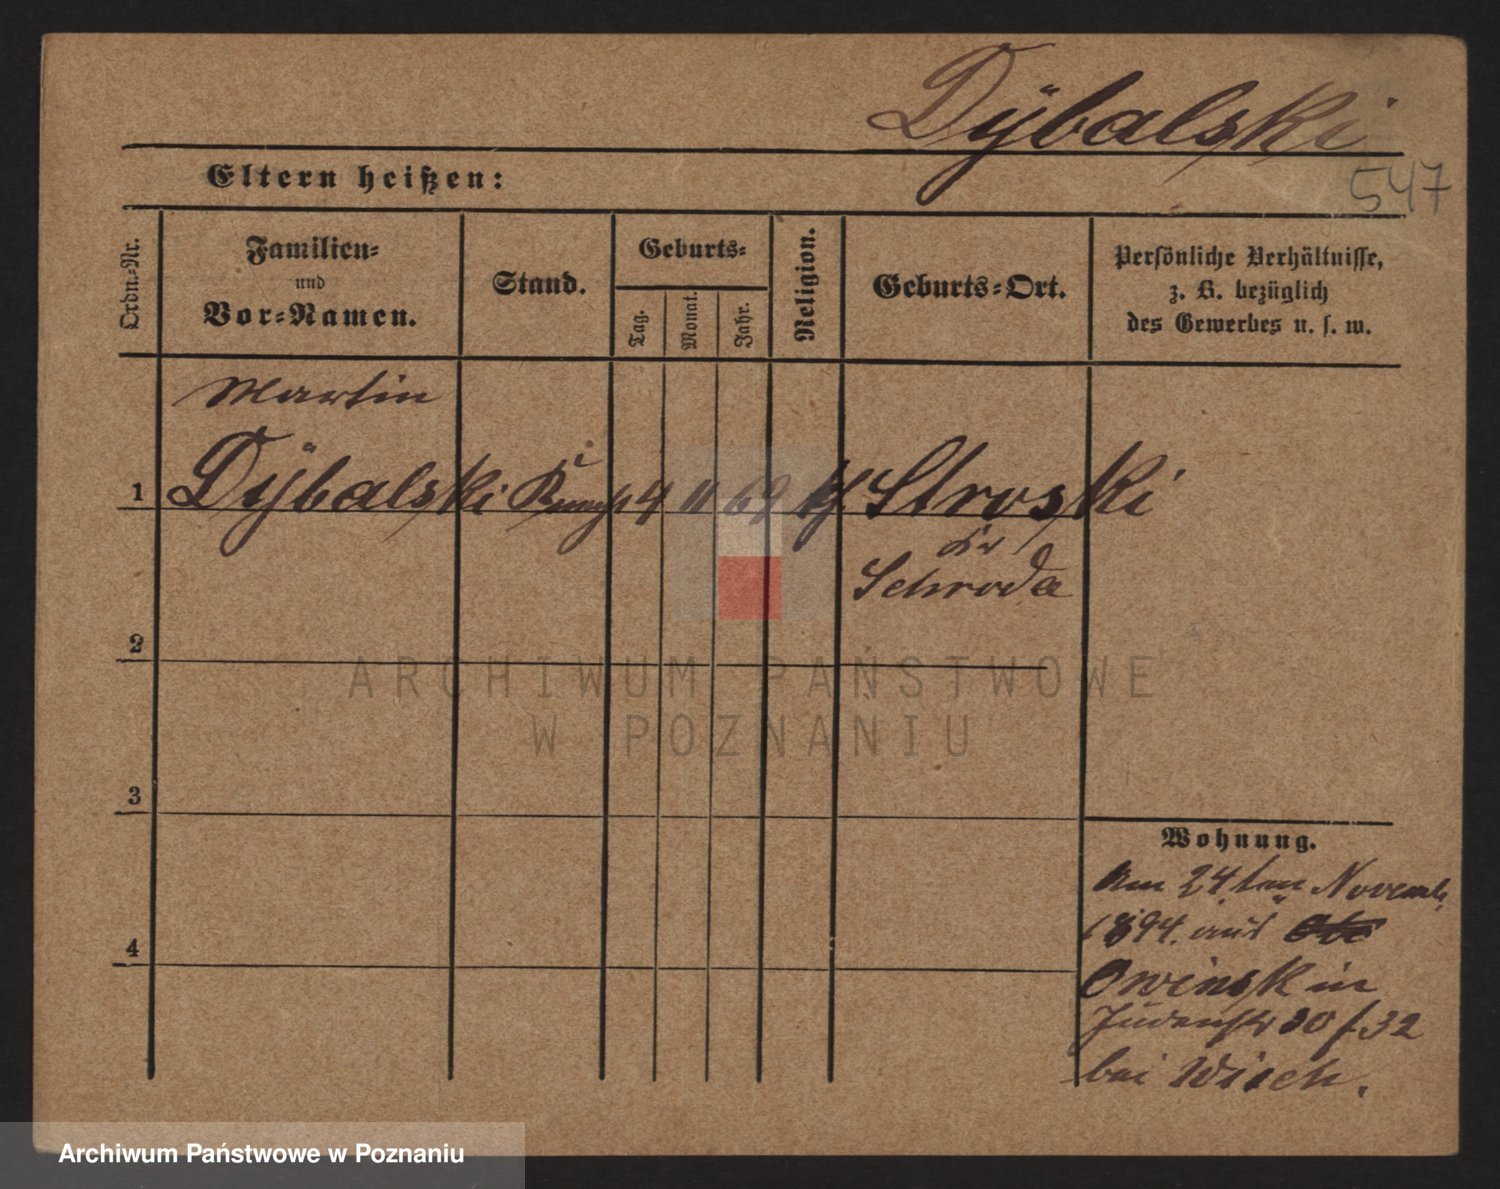 Dÿbalski
547
Eltern heißen:
Ordn.-Nr.
Familien-
und
Vor-Namen.
Stand.
Geburts-
Tag.
Monat.
Jahr.
Religion.
Geburts-Ort.
Persönliche Verhältnisse,
z. B. bezüglich
des Gewerbes u. s. w.
Martin
1 Dÿbalski 4 11 69 kt Stroski
Kr
Schroda
2
3
4
Wohnung.
Am 24. ten Novemb.
1894. aus
Owinsk in
Judenstr 30/32
bei Wisch.
ARCHIWUM PAŃSTWOWE
W POZNANIU
Archiwum Państwowe w Poznaniu